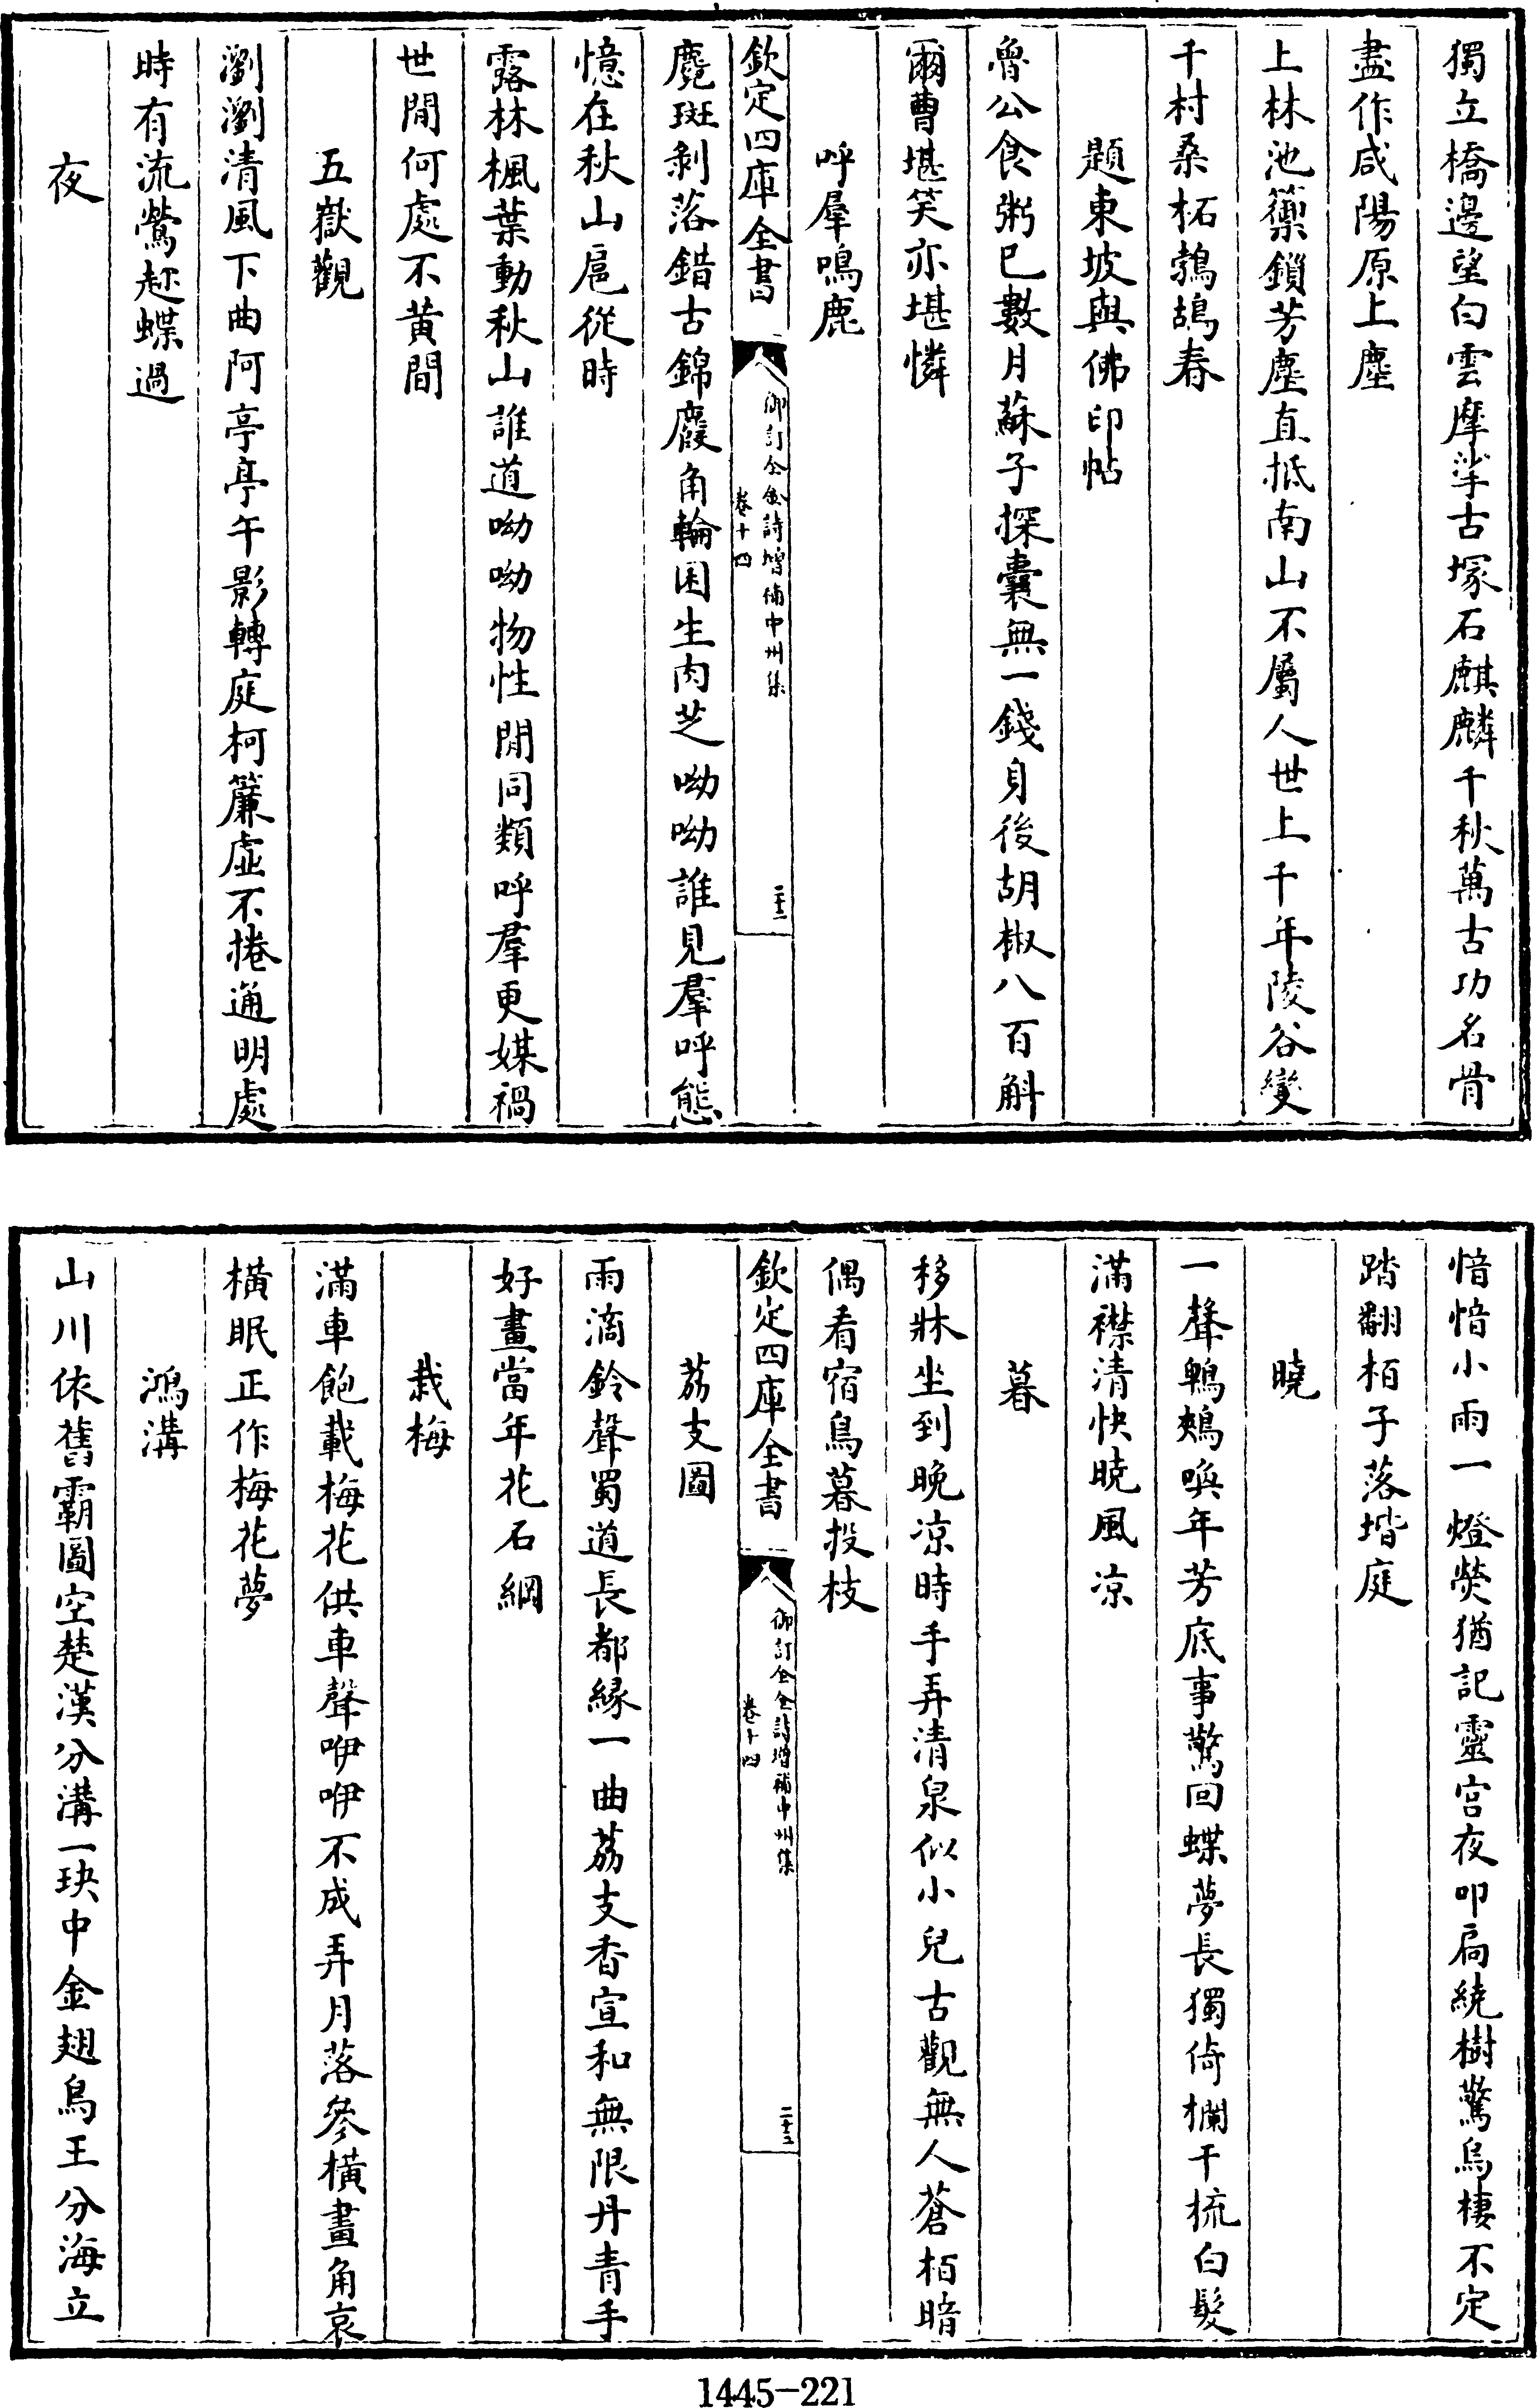 獨立橋邊望白雲摩挲古塚石麒麟千秋萬古功名骨
盡作咸陽原上塵
上林池籞鎖芳塵直抵南山不屬人世上千年陵谷變
千村桑柘鵓鴣春
題東坡與佛印帖
魯公食粥已數月蘇子探囊無一錢身後胡椒八百斛
爾曹堪笑亦堪憐
呼羣鳴鹿
欽定四庫全書
御訂全金詩增補中州集
卷十四
二十二
麑斑剝落錯古錦麚角輪囷生肉芝呦呦誰見羣呼態
憶在秋山扈從時
露林楓葉動秋山誰道呦呦物性閒同類呼羣更媒禍
世間何處不黃間
五嶽觀
瀏瀏清風下曲阿亭亭午影轉庭柯簾虛不捲通明處
時有流鶯趂蝶過
夜
愔愔小雨一燈熒猶記靈宫夜叩扃繞樹驚烏棲不定
踏翻栢子落堦庭
曉
一聲鵯鵊喚年芳底事驚回蝶夢長獨倚欄干梳白髮
滿襟清快曉風凉
暮
移牀坐到晚凉時手弄清泉似小兒古觀無人蒼栢暗
偶看宿鳥暮投枝
欽定四庫全書
御訂全金詩增補中州集
卷十四
二十三
荔支圖
雨滴鈴聲蜀道長都縁一曲荔支香宣和無限丹青手
好畫當年花石綱
栽梅
滿車飽載梅花供車聲咿咿不成弄月落參橫畫角哀
橫眠正作梅花夢
鴻溝
山川依舊霸圖空楚漢分溝一玦中金翅鳥王分海立
1445-221